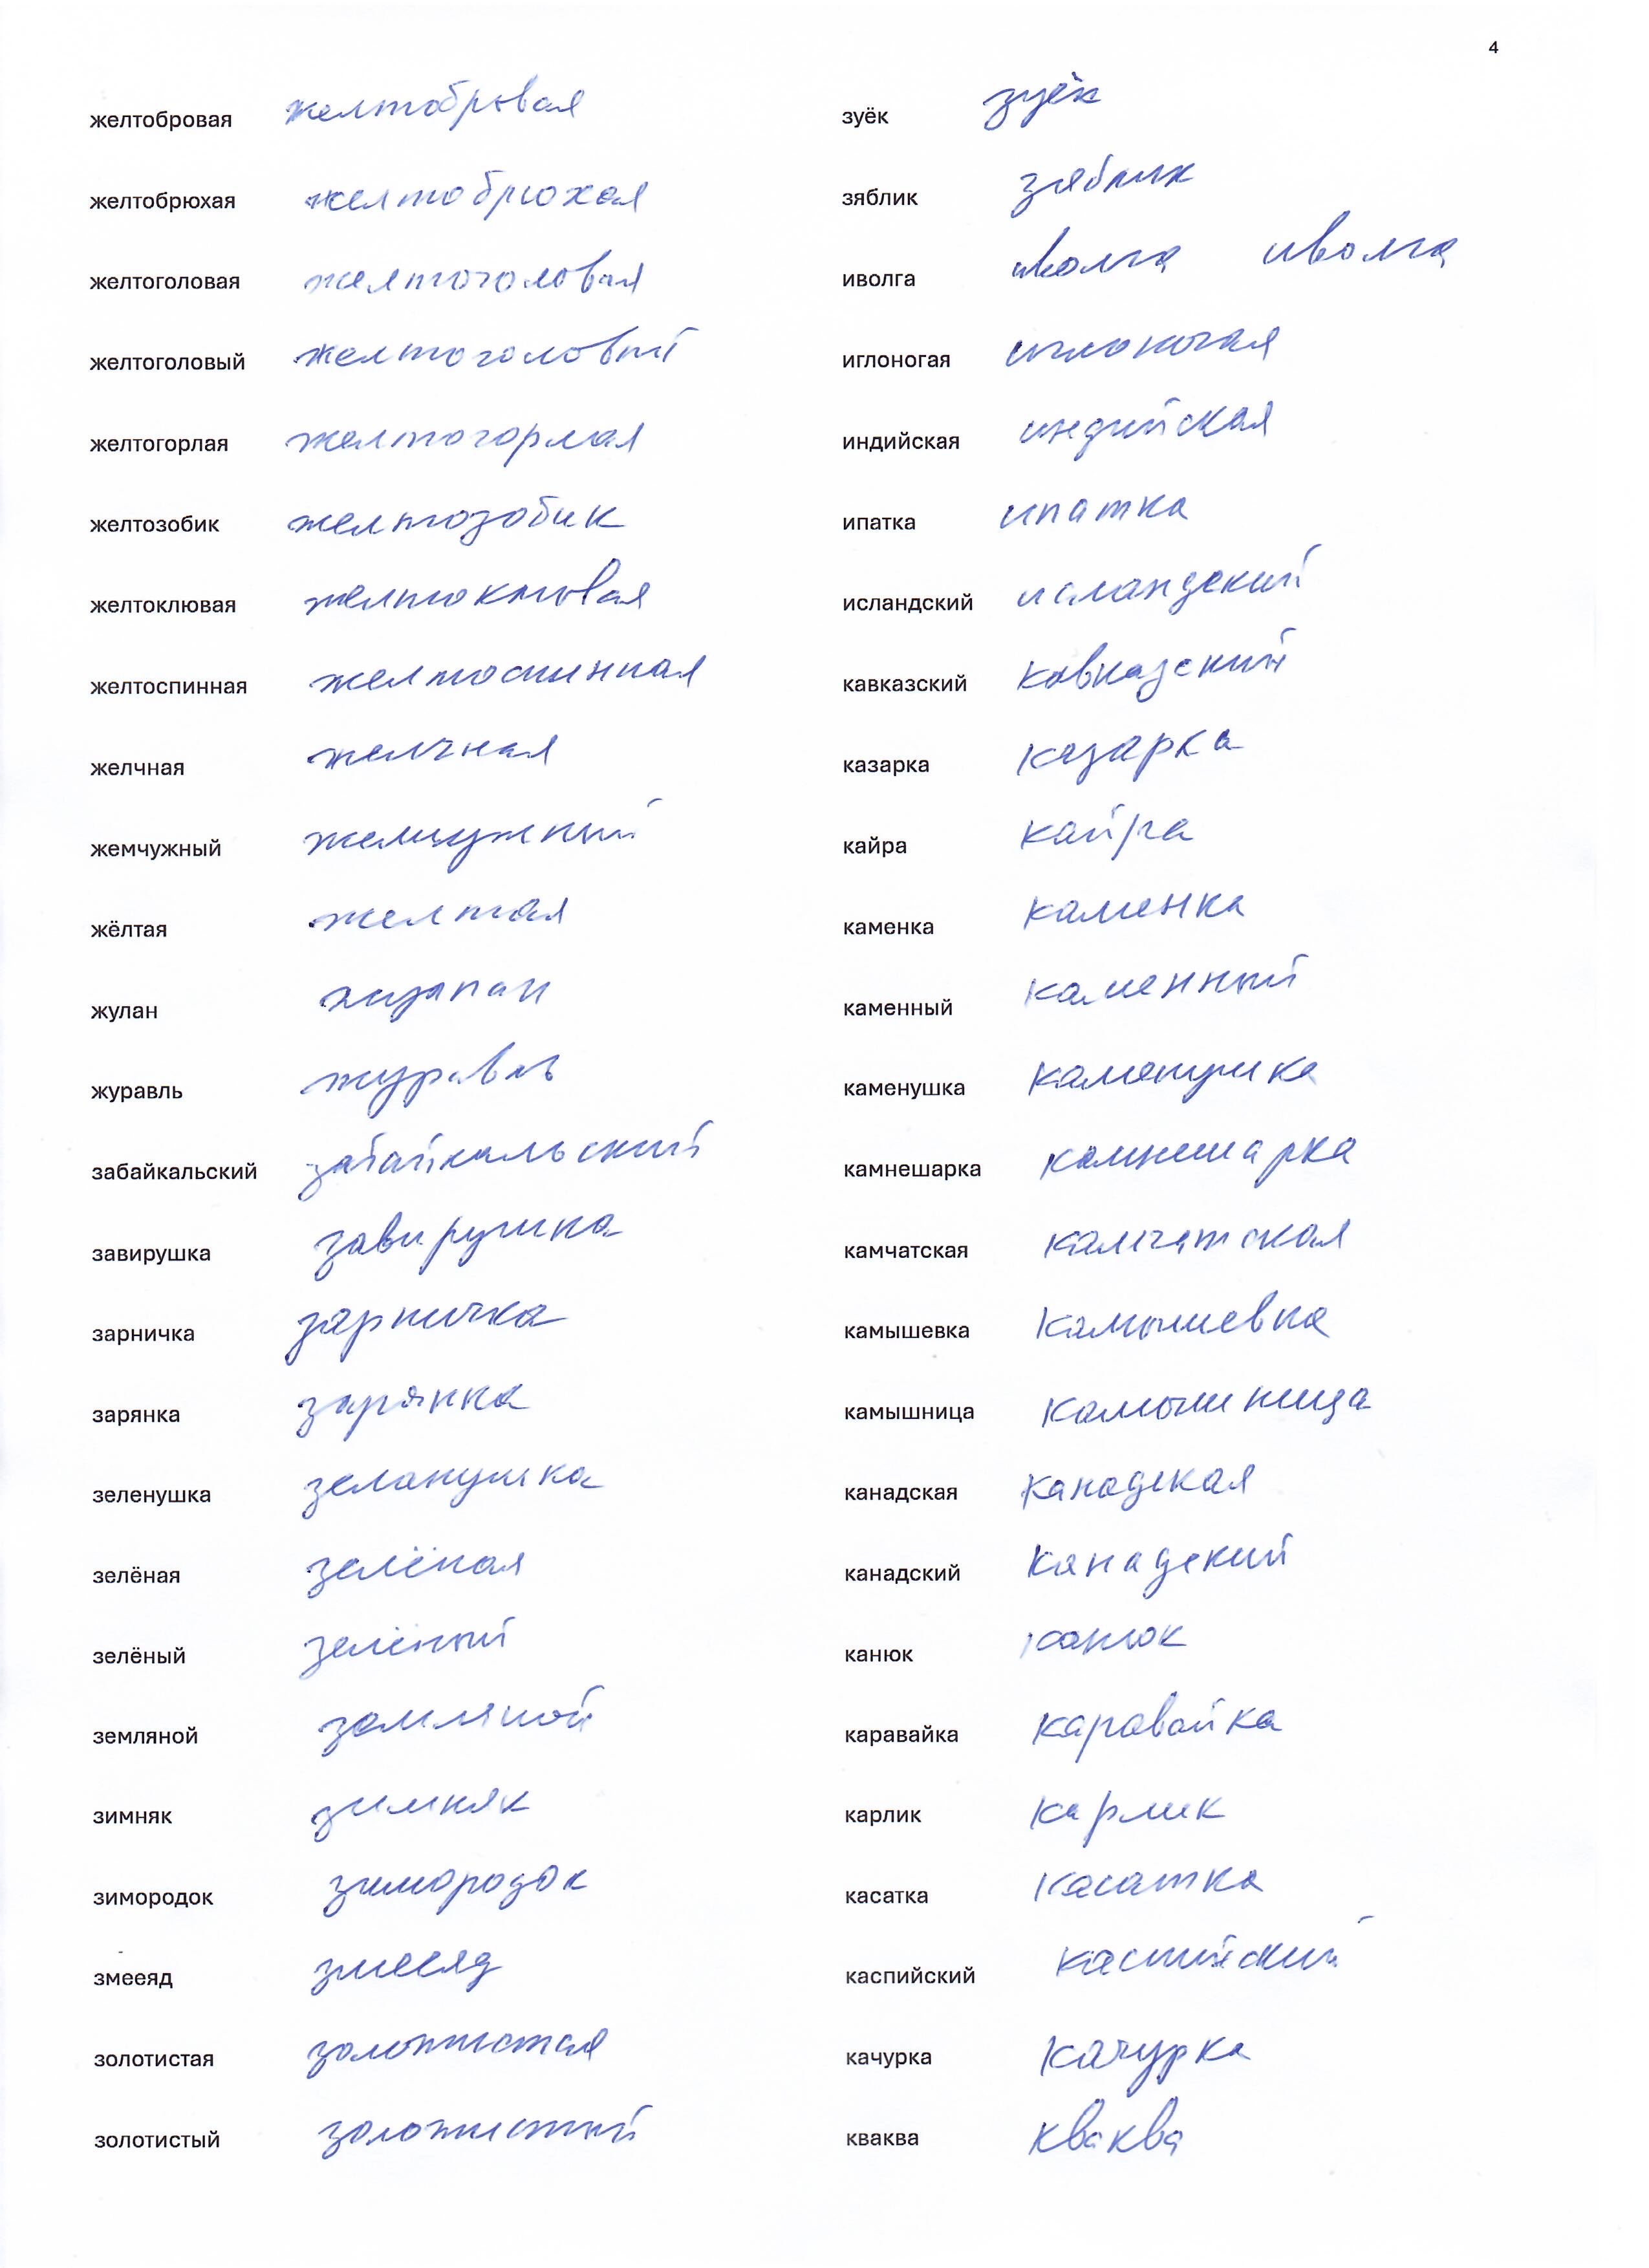 4
желтобровая желтобровая
желтобрюхая желтобрюхая
желтоголовая желтоголовая
желтоголовый желтоголовый
желтогорлая желтогорлая
желтозобик желтозобик
желтоклювая желтоклювая
желтоспинная желтоспинная
желчная желчная
жемчужный жемчужный
жёлтая желтая
жулан
журавль журавль
забайкальский забайкальский
завирушка завирушка
зарничка зарничка
зарянка зарянка
зеленушка зеленушка
зелёная зелёная
зелёный зелёный
земляной земляной
зимняк зимняк
зимородок зимородок
змееяд змееяд
золотистая золотистая
золотистый золотистый
зуёк зуёк
зяблик зяблик
иволга иволга иволга
иглоногая иглоногая
индийская индийская
ипатка ипатка
исландский исландский
кавказский кавказский
казарка казарка
кайра кайра
каменка каменка
каменный каменный
каменушка каменушка
камнешарка камнешарка
камчатская камчатская
камышевка камышевка
камышница камышница
канадская канадская
канадский канадский
канюк канюк
каравайка каравайка
карлик карлик
касатка касатка
каспийский каспийский
качурка качурка
кваква кваква